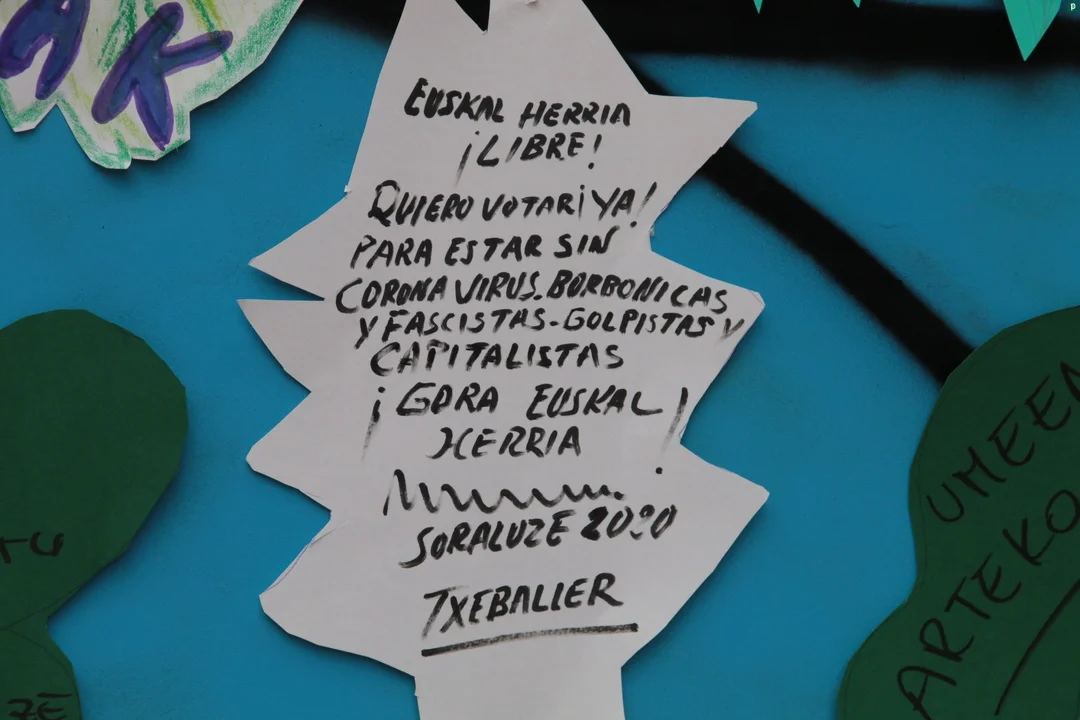 AK
EUSKAL HERRIA
¡LIBRE!
QUIERO VOTAR ¡YA!
PARA ESTAR SIN
CORONAVIRUS. BORBONICAS
Y FASCISTAS-GOLPISTAS Y
CAPITALISTAS
¡GORA EUSKAL
HERRIA!
SORALUZE 2020
TXEBALIER
UMEEN
ARTEKO